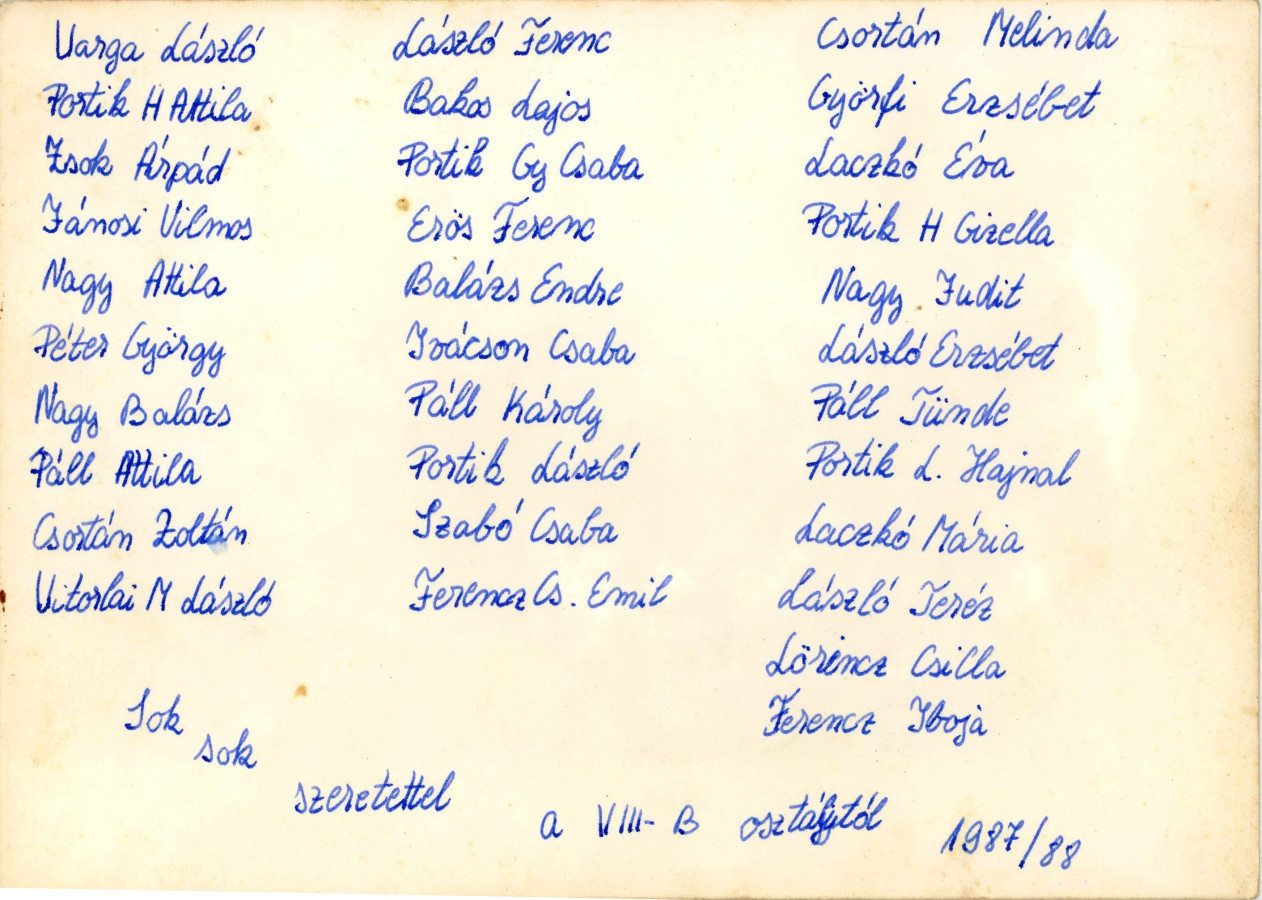 Varga László
Portik H Attila
Zsok Árpád
Jánosi Vilmos
Nagy Attila
Péter György
Nagy Balázs
Páll Attila
Csortán Zoltán
Vitorlai M László
László Ferenc
Bakos Lajos
Portik Gy Csaba
Erös Ferenc
Balázs Endre
Ivácson Csaba
Páll Károly
Portik László
Szabó Csaba
Ferencz Cs. Emil
Csortán Melinda
Györfi Erzsébet
Laczkó Éva
Portik H Gizella
Nagy Judit
László Erzsébet
Páll Tünde
Portik L. Hajnal
Laczkó Mária
László Teréz
Lörincz Csilla
Ferencz Iboja
Sok
sok
szeretettel
a VIII-B osztálytól 1987/88